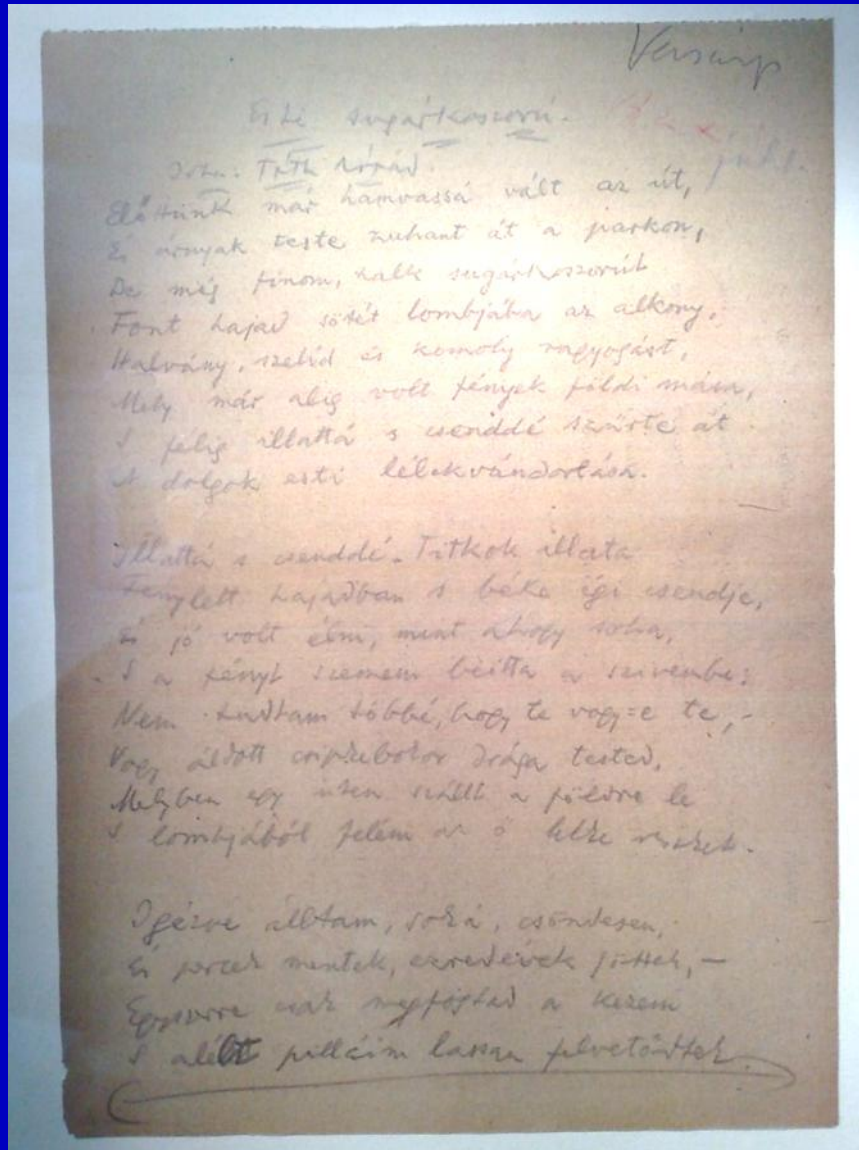 Esti sugárkoszorú.
Irta: Tóth Árpád.
Előttünk már hamvassá vált az út,
És árnyak teste zuhant át a parkon,
De még finom, halk sugárkoszorút
Font hajad sötét lombjába az alkony.
Halvány, szelíd és komoly ragyogást,
Mely már alig volt fények földi mása,
S félig illattá s csenddé szűrte át
A dolgok esti lélekvándorlása.
Illattá s csenddé. Titkok illata
Fénylett hajadban s béke égi csendje,
És jó volt élni, mint ahogy soha,
S a fényt szemem beitta a szivembe:
Nem tudtam többé, hogy te vagy-e te,-
Vagy áldott csipkebokor drága tested,
Melyben egy isten szállt a földre le
S lombjából felém az ő lelke reszket.
Igézve álltam, soká, csöndesen,
És percek mentek, ezredévek jöttek,-
Egyszerre csak megfogtad a kezem
S alélt pilláim lassan felvetődtek.